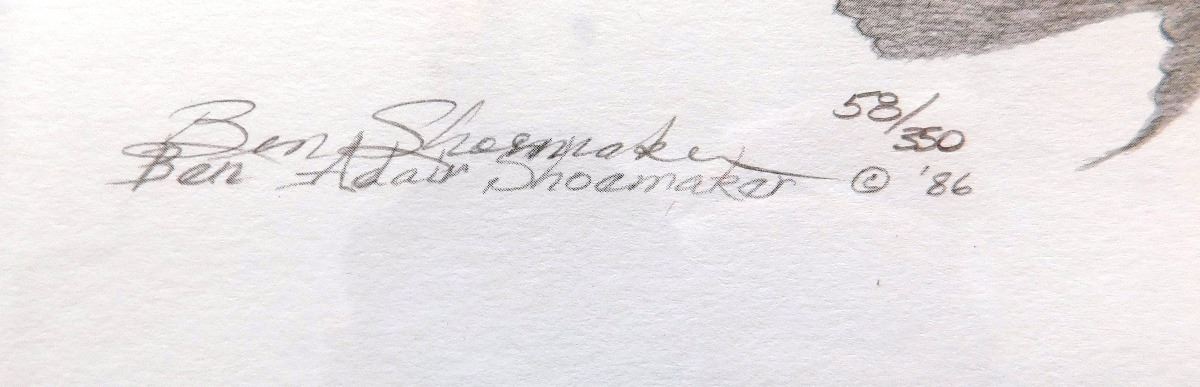 Ben Shoemaker 58/350
Ben Adair Shoemaker © '86